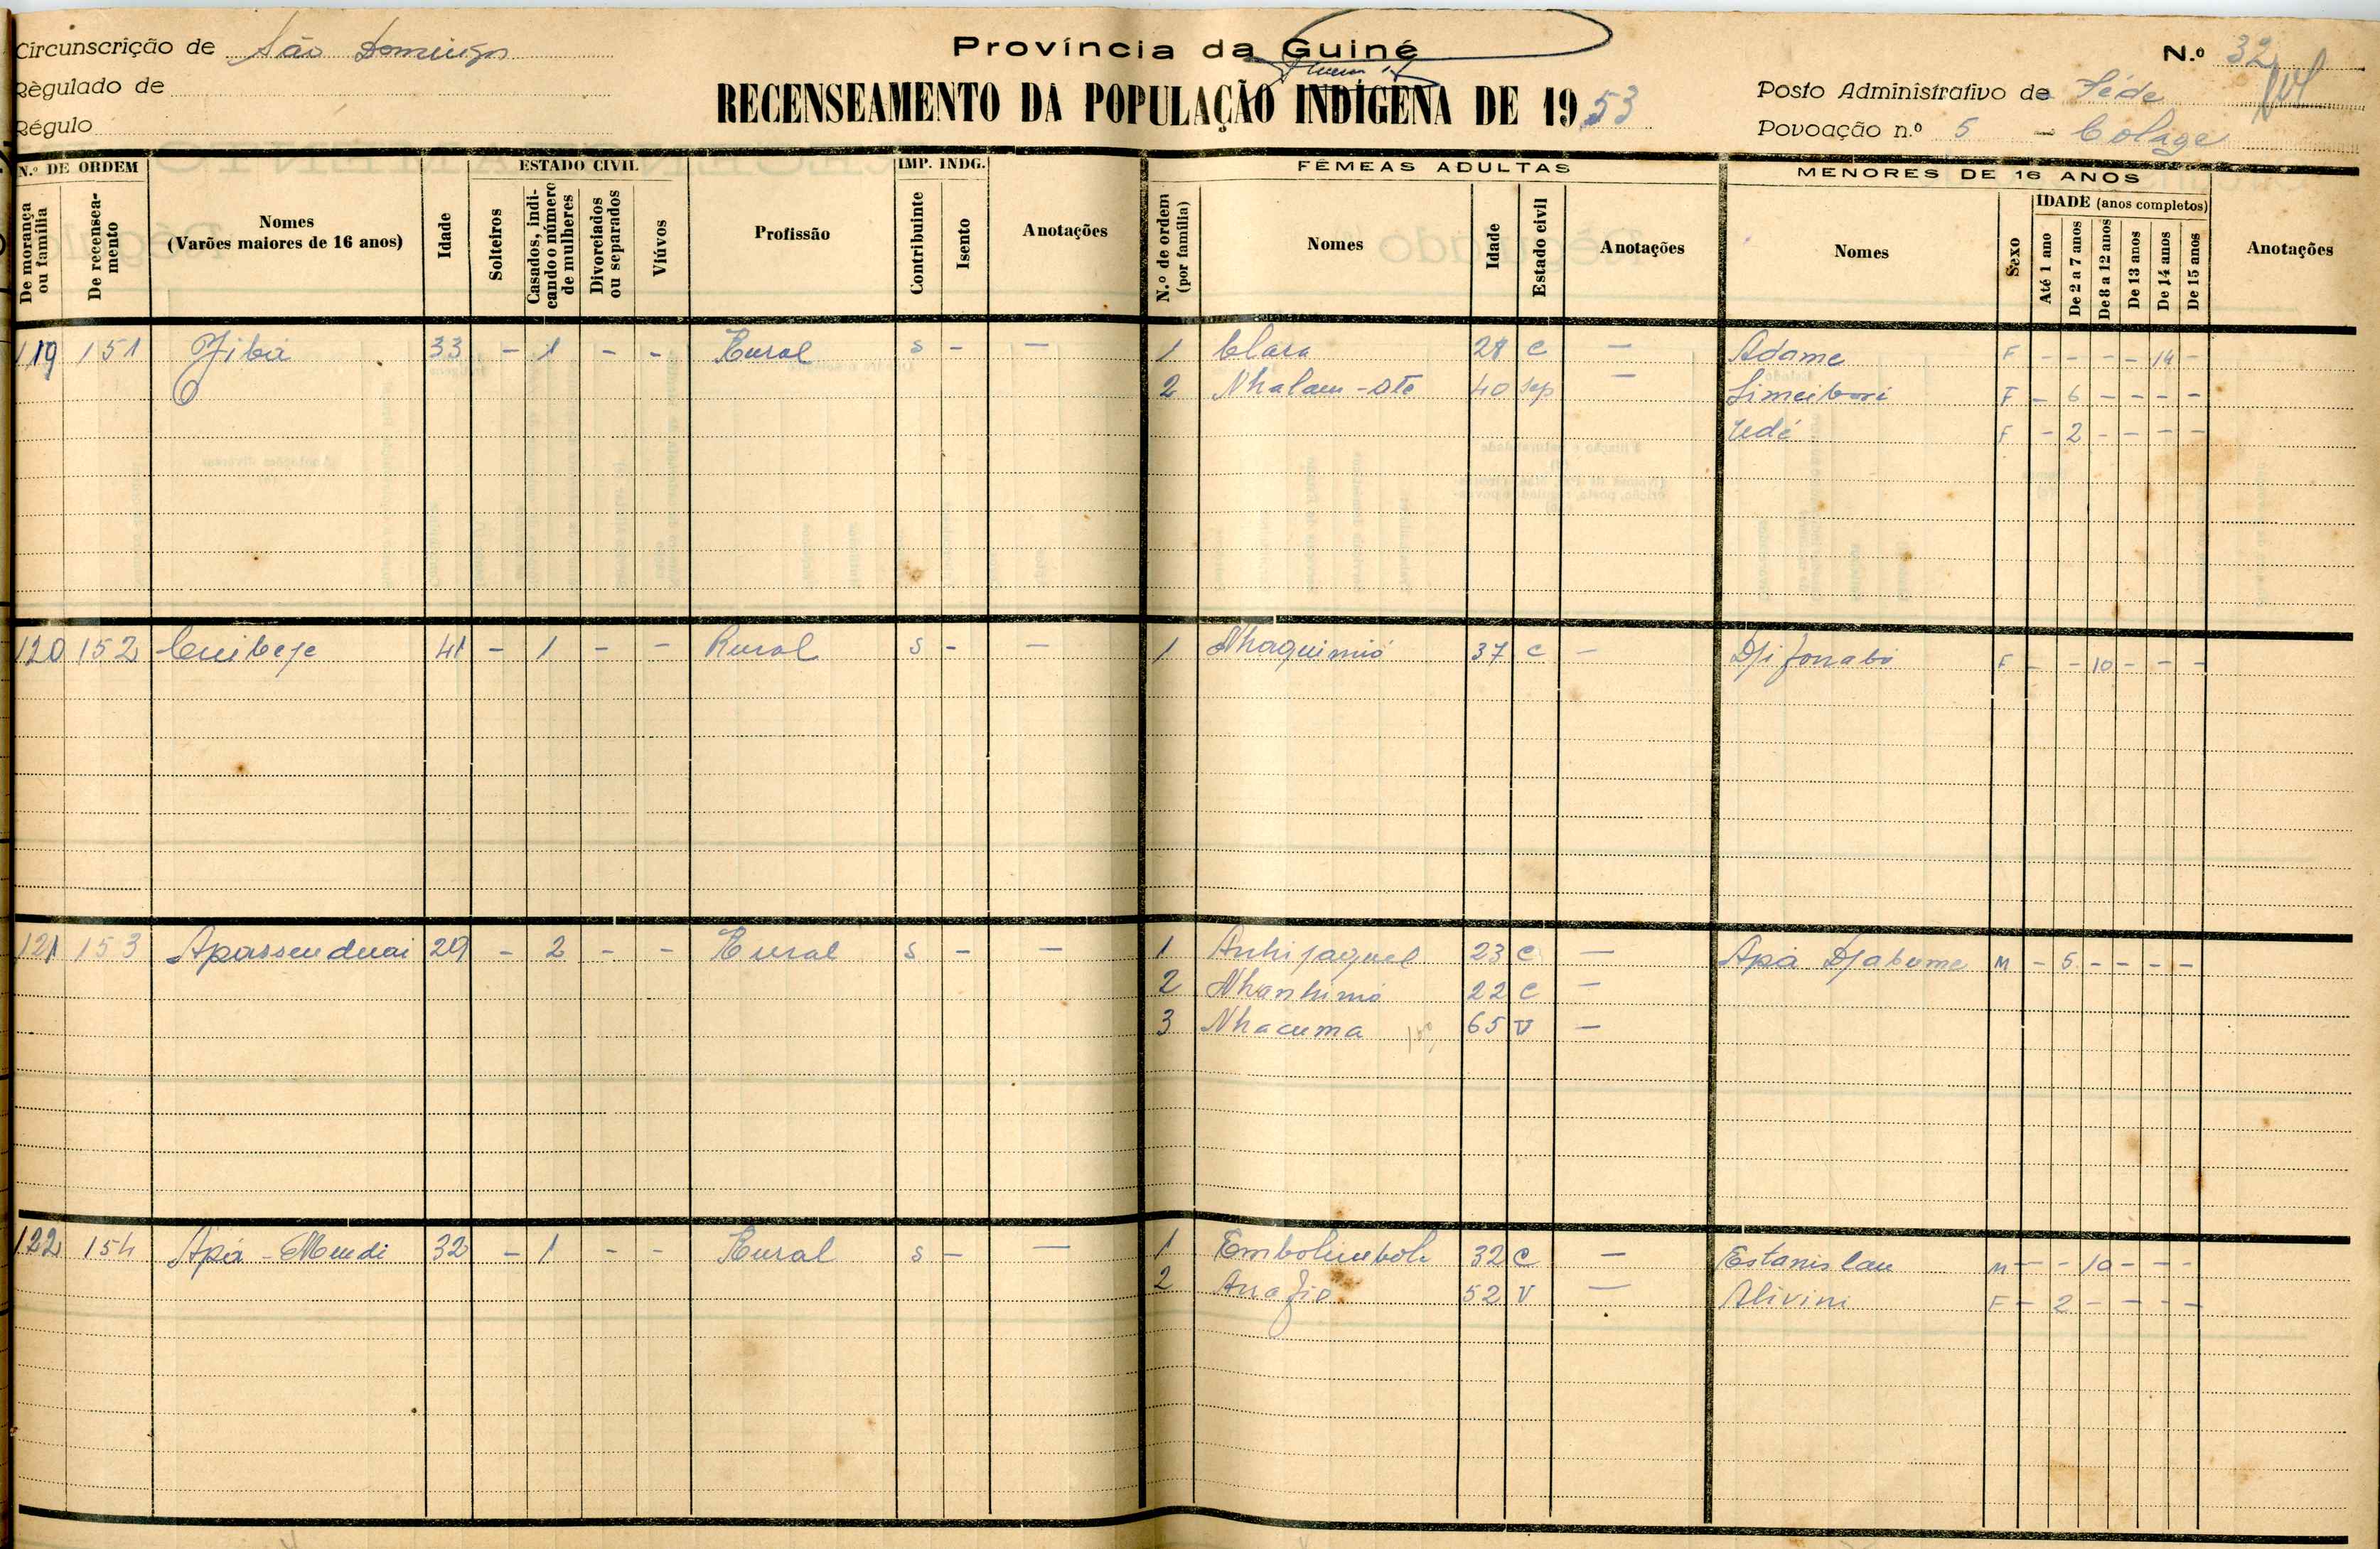 Circunscrição de São Domingos
Província da Guiné
N.º 32
Règulado de
RECENSEAMENTO DA POPULAÇÃO INDÍGENA DE 1953
Posto Administrativo de Séde
Régulo
Povoação n.º 5 - Colage
N.º DE ORDEM
ESTADO CIVIL
IMP. INDG.
FÊMEAS ADULTAS
MENORES DE 16 ANOS
IDADE (anos completos)
De morança ou família
De recenseamento
Nomes
(Varões maiores de 16 anos)
Idade
Solteiros
Casados, indicando o número de mulheres
Divorciados ou separados
Viúvos
Profissão
Contribuinte
Isento
Anotações
N.º de ordem (por família)
Nomes
Idade
Estado civil
Anotações
Nomes
Sexo
Até 1 ano
De 2 a 7 anos
De 8 a 12 anos
De 13 anos
De 14 anos
De 15 anos
Anotações
119 151 Jiba 33 - 1 - - Rural s - — 1 Clara 28 c — Adame F - - - - 14 -
2 40 sep — F - 6 - - - -
Uedé F - 2 - - - -
120 152 41 - 1 - - Rural s - — 1 Nhaquimió 37 c — F - - 10 - - -
121 153 Apassenduai 29 - 2 - - Rural s - — 1 23 c — Apá Djabume M - 5 - - - -
2 22 c —
3 Nhacuma 65 V —
122 154 Apá - Mendi 32 - 1 - - Rural s - — 1 32 c — Estanislau M - - 10 - - -
2 52 V — Alivini F - 2 - - - -